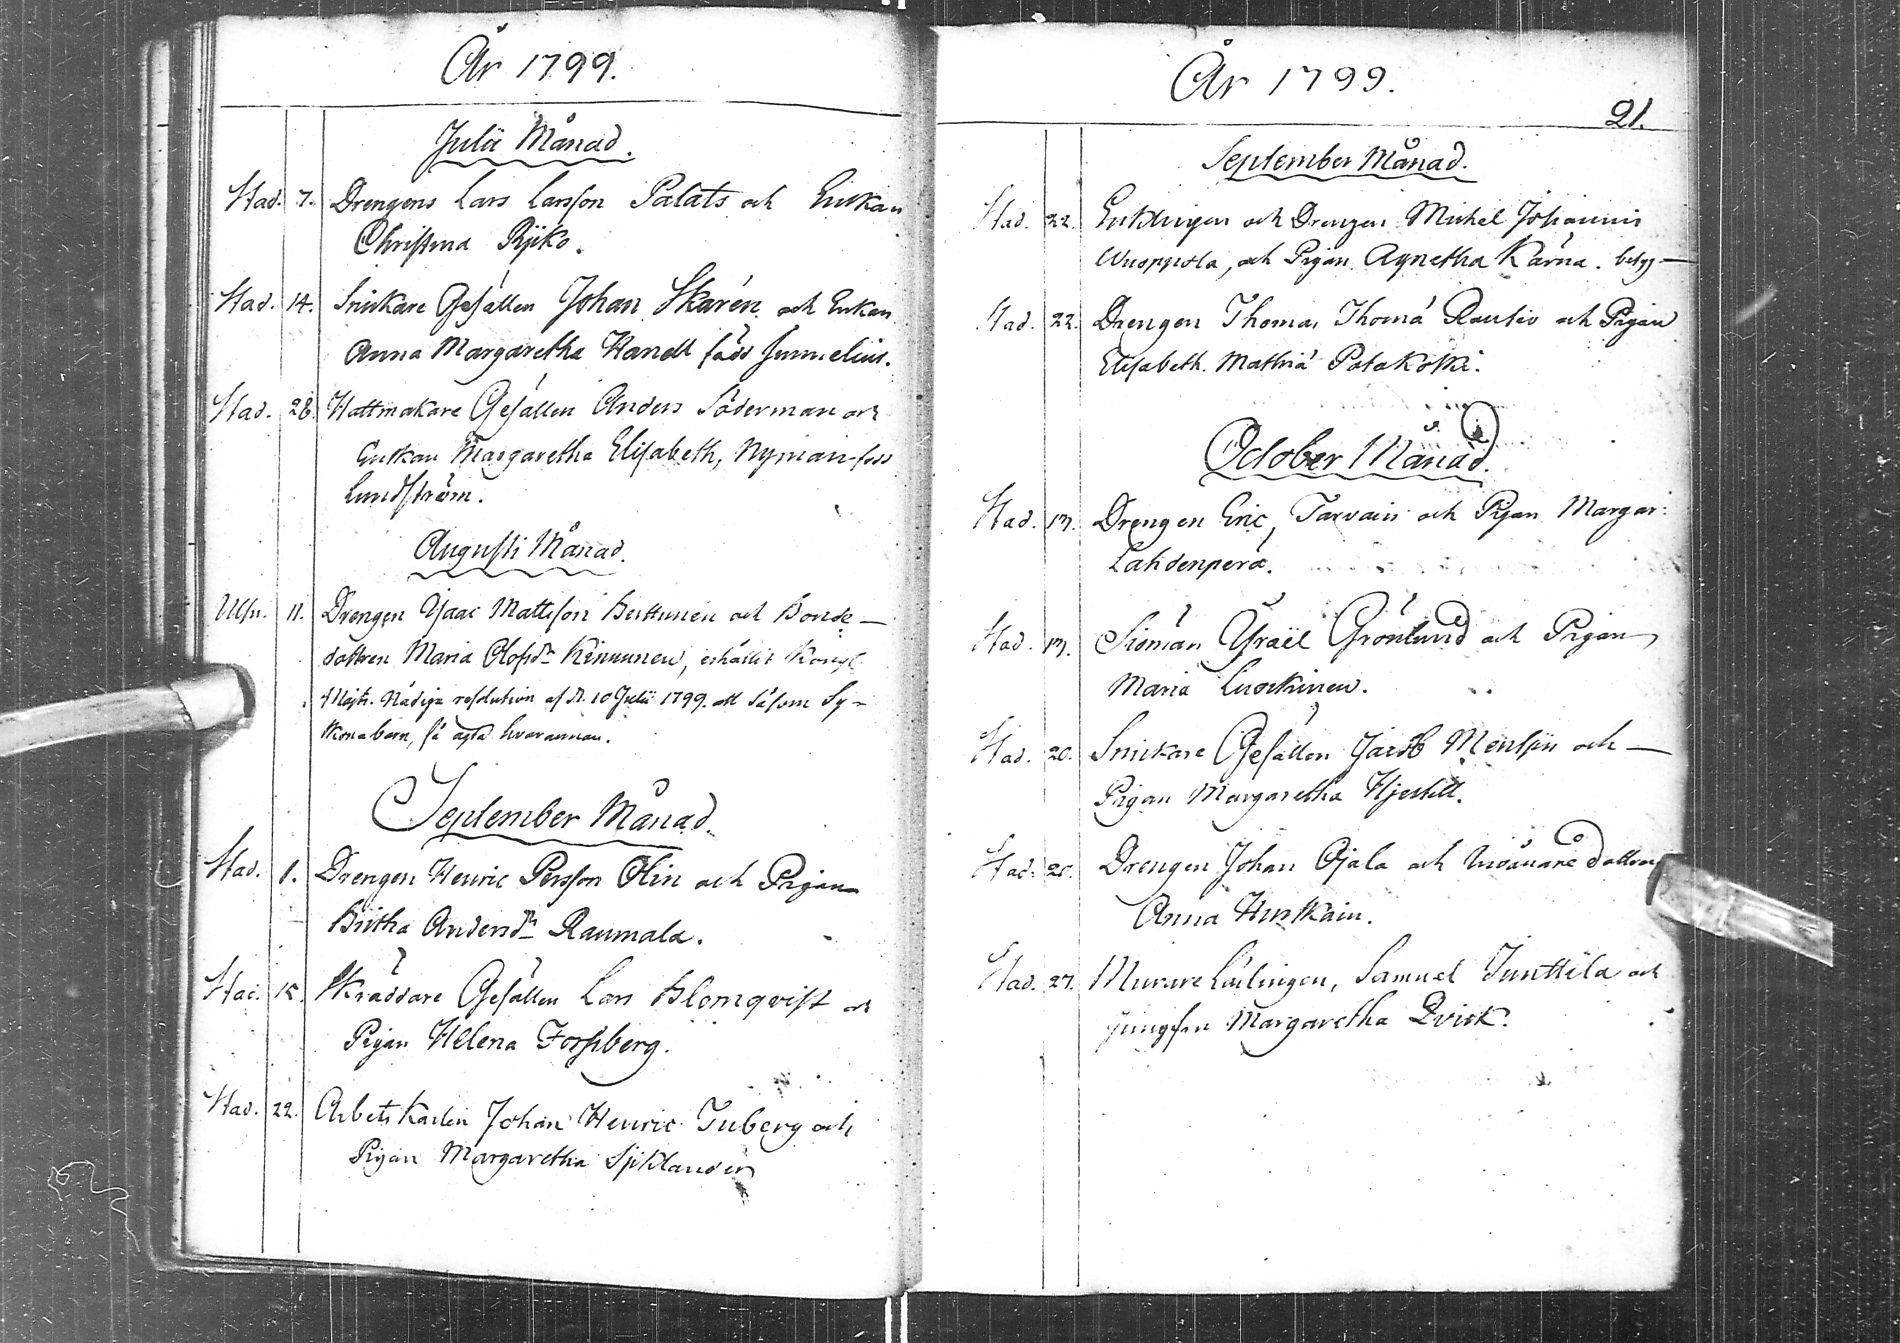 År 1799.
Julii Månad.
Stad. 7. Drengens Lars Larsson Palats och Enkan
Christina Rijko.
Stad. 14. Snickare Gesällen Johan Skarén och Enkan
Anna Margaretha Handl född
Stad. 28. Hattmakare Gesällen Anders Söderman och
Enkan Margaretha Elisabeth, Nyman född
Lundström.
Augusti Månad.
11. Drengen Isaac Mattsson och Bonde-
dottren Maria Olofsdr Kinnunen, erhållit Kongl
Majts. Nådiga resolution af d. 10 Julii 1799. att såsom Sy-
skonabarn, få ägta hvarannan.
September Månad.
Stad. 1. Drengen Henric Persson Olin och Pigan
Britha Andersdr Raumala.
Stad. 15. Skräddare Gesällen Lars Blomqvist och
Pigan Helena Forssberg.
Stad. 22. Arbets Karlen Johan Henric Tuberg och
Pigan Margaretha
År 1799.
21.
September Månad.
Stad. 22. Enklingen och Drengen Michel Johannis
Wuoppola, och Pigan Agnetha Kärnä.
Stad. 22. Drengen Thomas Thomæ Rautio och Pigan
Elisabeth Mathiæ Patakoski.
October Månad.
Stad. 13. Drengen Eric, Tarvain och Pigan Margar:
Lahdenperä.
Stad. 13. Sjöman Israël Grönlund och Pigan
Maria Luockinen.
Stad. 20. Snickare Gesällen Jacob och
Pigan Margaretha
Stad. 20. Drengen Johan Ojala och dottren
Anna Hurskain.
Stad. 27. Murare Lärlingen, Samuel Junttila och
Jungfru Margaretha Qvick.